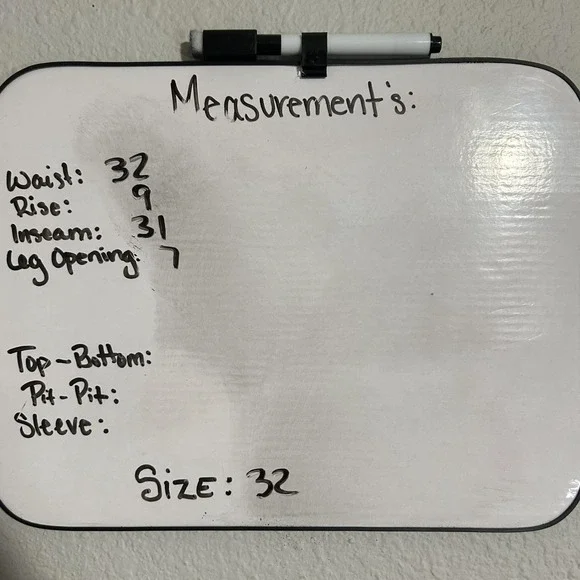 Measurement's:
Waist: 32
Rise: 9
Inseam: 31
Leg Opening: 7
Top-Bottom:
Pit-Pit:
Sleeve:
Size: 32